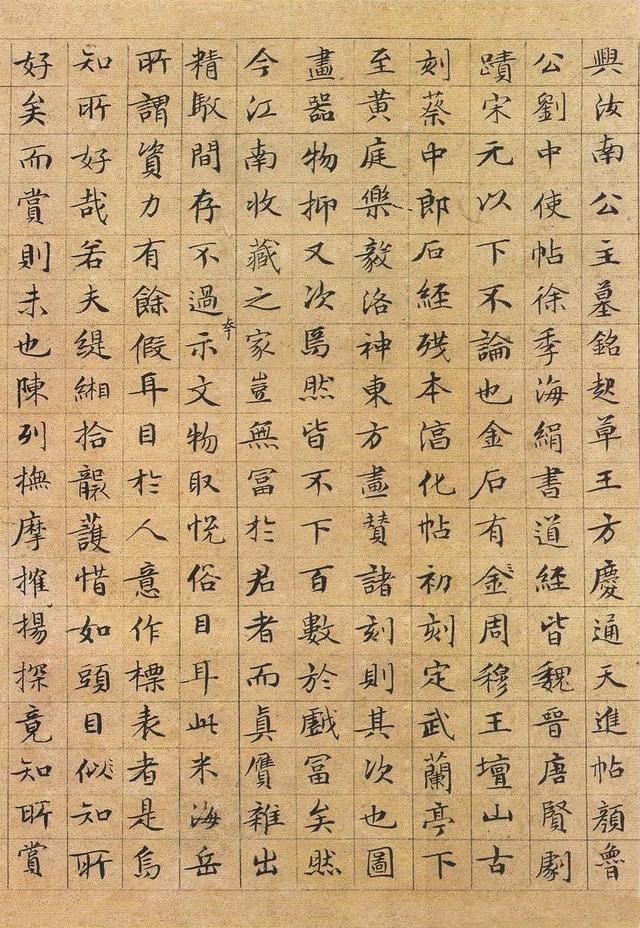 興汝南公主墓銘起草王方慶通天進帖顏魯
公劉中使帖徐季海絹書道經皆魏晉唐賢劇
蹟宋元以下不論也金石有金周穆王壇山古
刻蔡中郎石經殘本淳化帖初刻定武蘭亭下
至黃庭樂毅洛神東方畫贊諸刻則其次也圖
畫器物抑又次焉然皆不下百數於戲富矣然
今江南收藏之家豈無富於君者而眞贋雜出
精駁間存不過夸示文物取悅俗目耳此米海岳
所謂資力有餘假耳目於人意作標表者是焉
知所好哉若夫緹緗拾襲護惜如頭目似知所
好矣而賞則未也陳列撫摩搉揚探竟知所賞